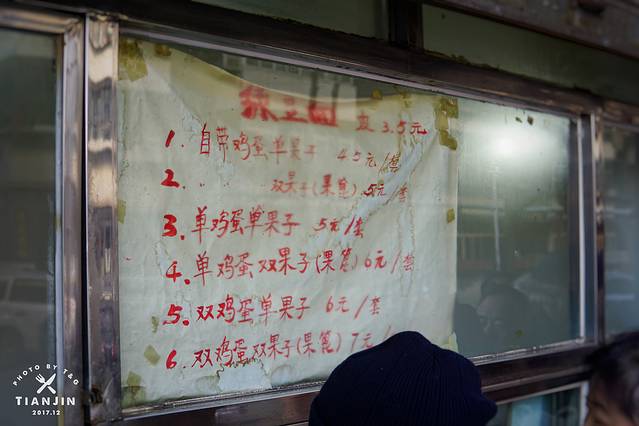 绿豆面 皮 3.5元
1. 自带鸡蛋单果子 4.5元/套
2. 〃 〃 双果子(果篦) 5元/套
3. 单鸡蛋单果子 5元/套
4. 单鸡蛋双果子(果篦) 6元/套
5. 双鸡蛋单果子 6元/套
6. 双鸡蛋双果子(果篦) 7元/
PHOTO BY T&G
TIANJIN
2017.12